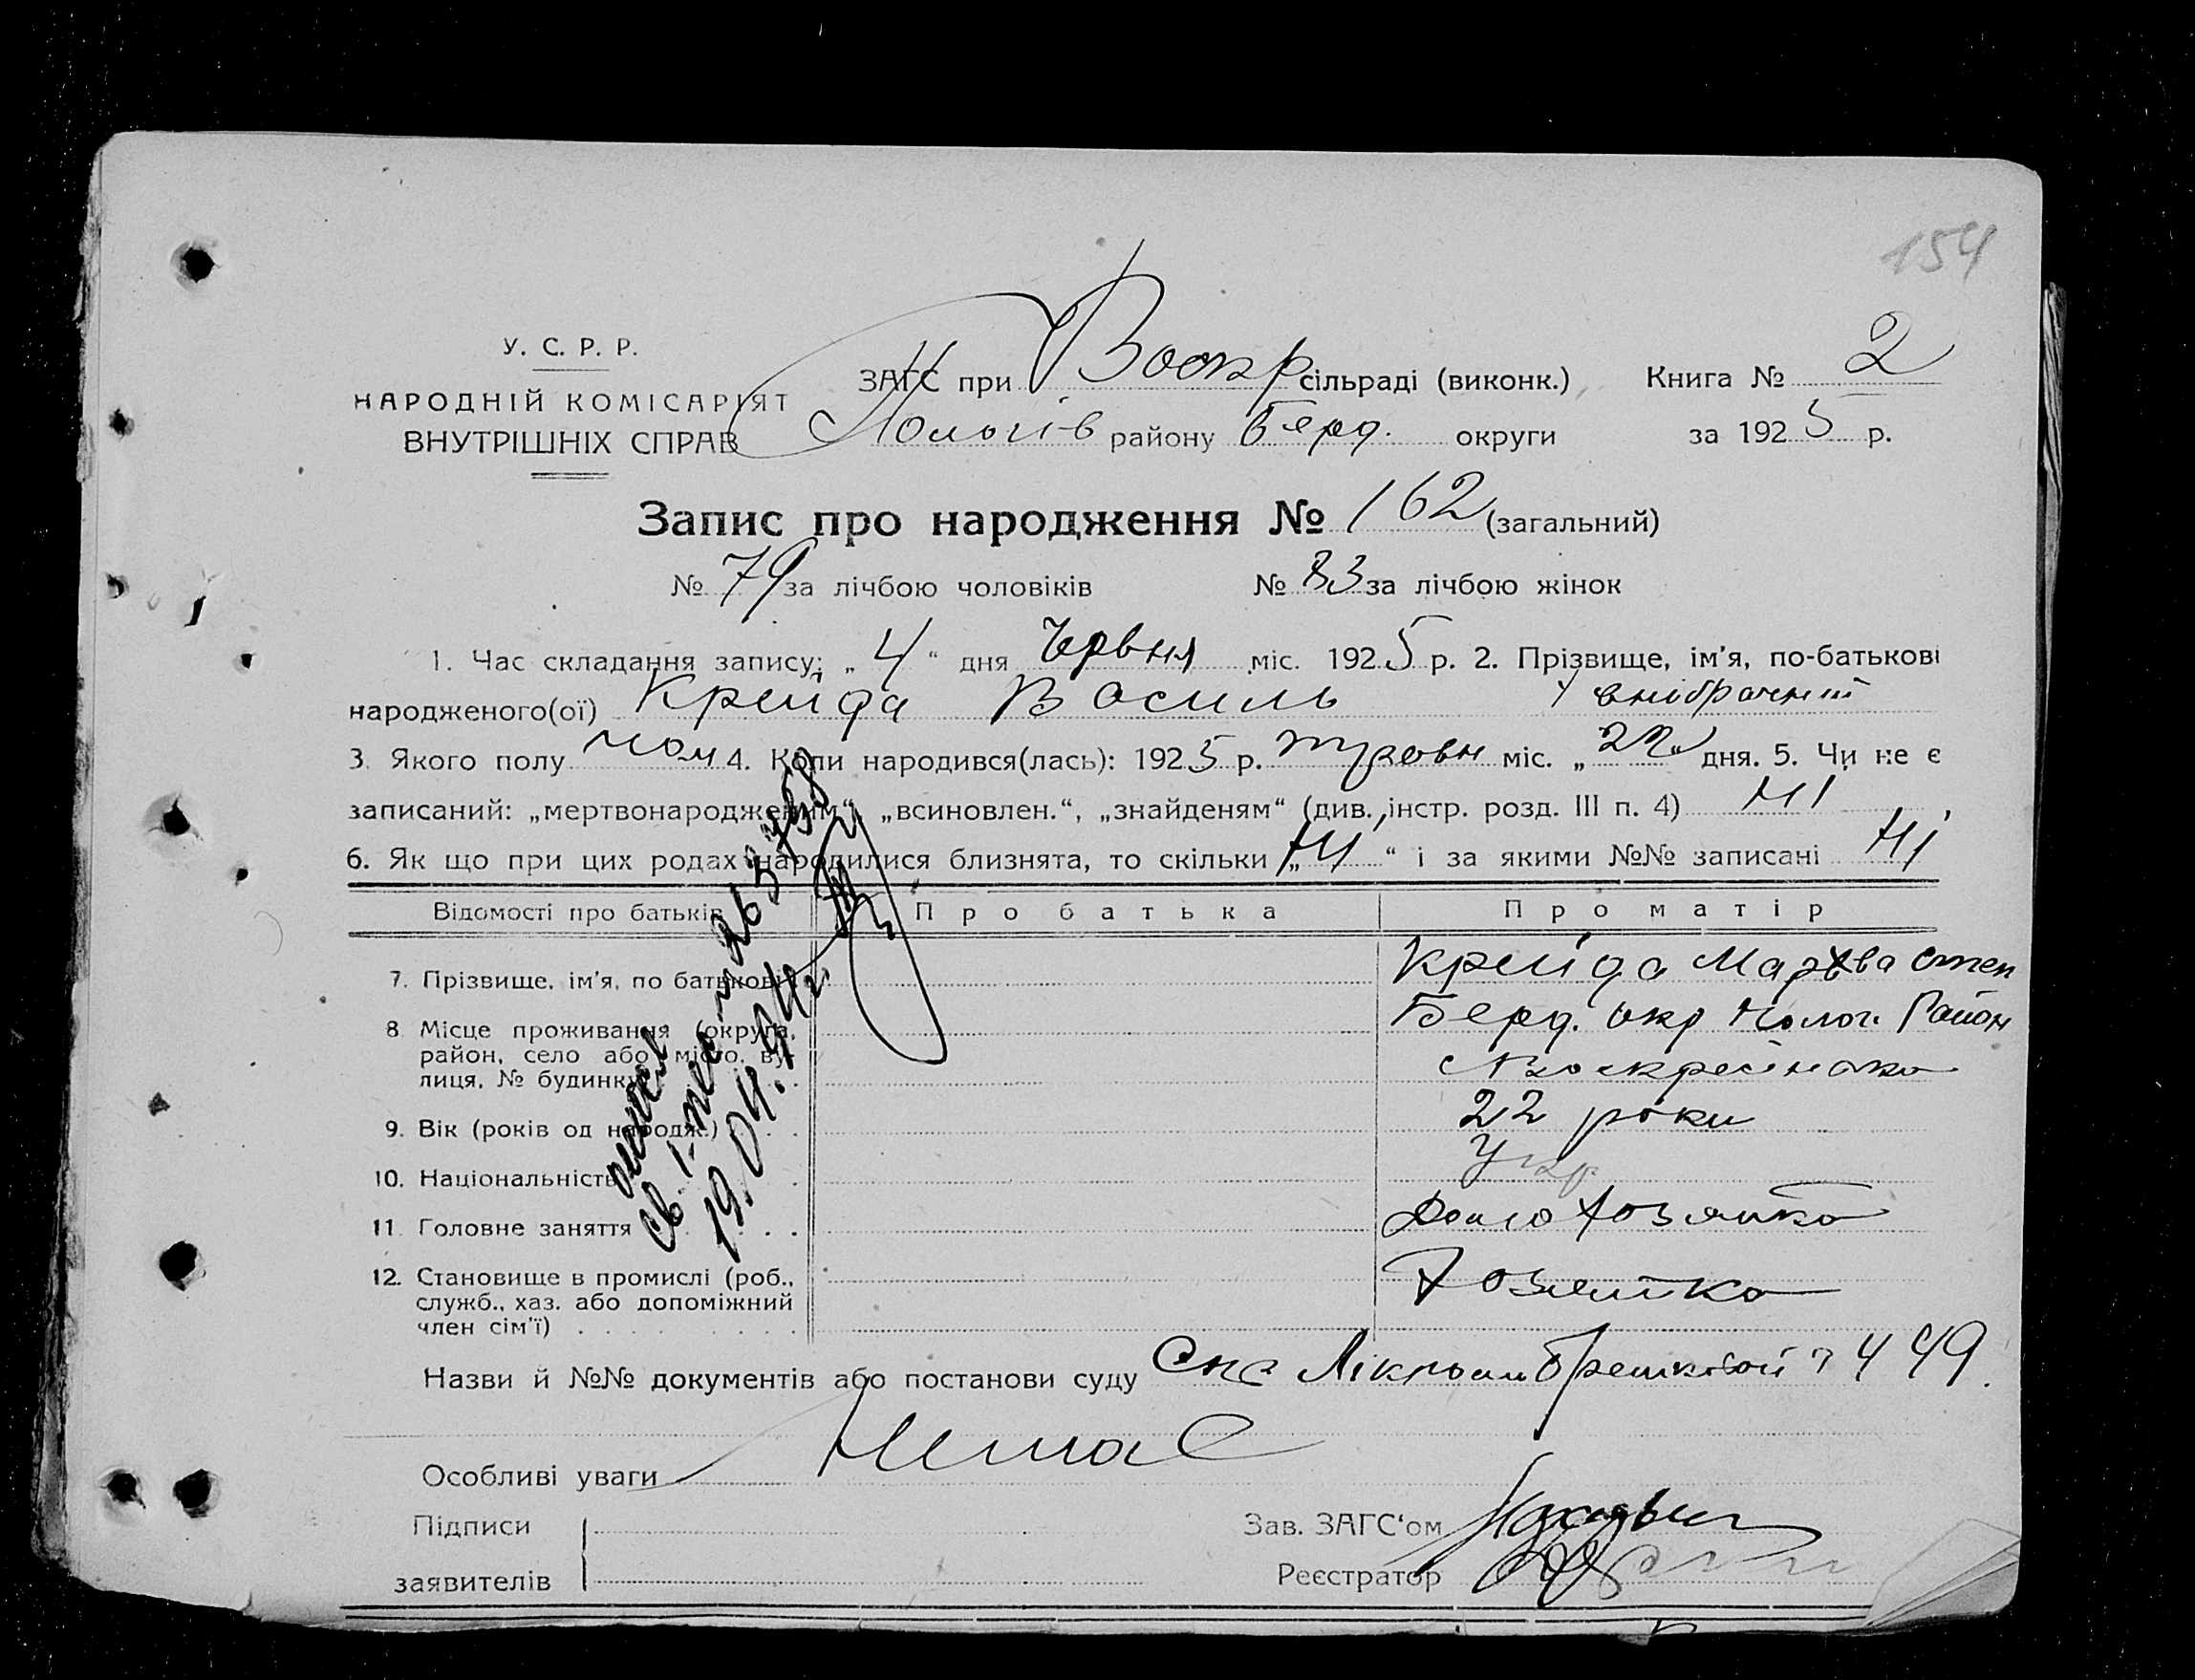 154
У. С. Р. Р.
НАРОДНІЙ КОМІСАРІЯТ
ВНУТРІШНІХ СПРАВ
ЗАГС при Воскр сільраді (виконк.) Книга № 2
Пологів району Берд. округи за 1925 р.
Запис про народження № 162 (загальний)
№ 79 за лічбою чоловіків № 83 за лічбою жінок
1. Час складання запису: „4“ дня Червня міс. 1925 р. 2. Прізвище, ім'я, по-батькові
народженого(ої) Крейда Василь
3. Якого полу чол 4. Коли народився(лась): 1925 р. травн міс. „22“ дня. 5. Чи не є
записаний: „мертвонародженим“, „всиновлен.“, „знайденям“ (див. інстр. розд. III п. 4) Ні
6. Як що при цих родах народилися близнята, то скільки „Ні“ і за якими №№ записані Ні
Відомості про батьків Про батька Про матір
7. Прізвище, ім'я, по батькові Крейда Марфа Степ
8. Місце проживання (округа, Берд. окр Полог. Район
район, село або місто, ву- Воскресінака
лиця, № будинку)
9. Вік (років од народж.) 22 роки
10. Національність Укр
11. Головне заняття Домо хозяйка
12. Становище в промислі (роб., Хозяйка
служб., хаз. або допоміжний
член сім'ї)
Назви й №№ документів або постанови суду 449
Особливі уваги Немає
Підписи
заявителів
Зав. ЗАГС'ом
Реєстратор
19.04.94г.